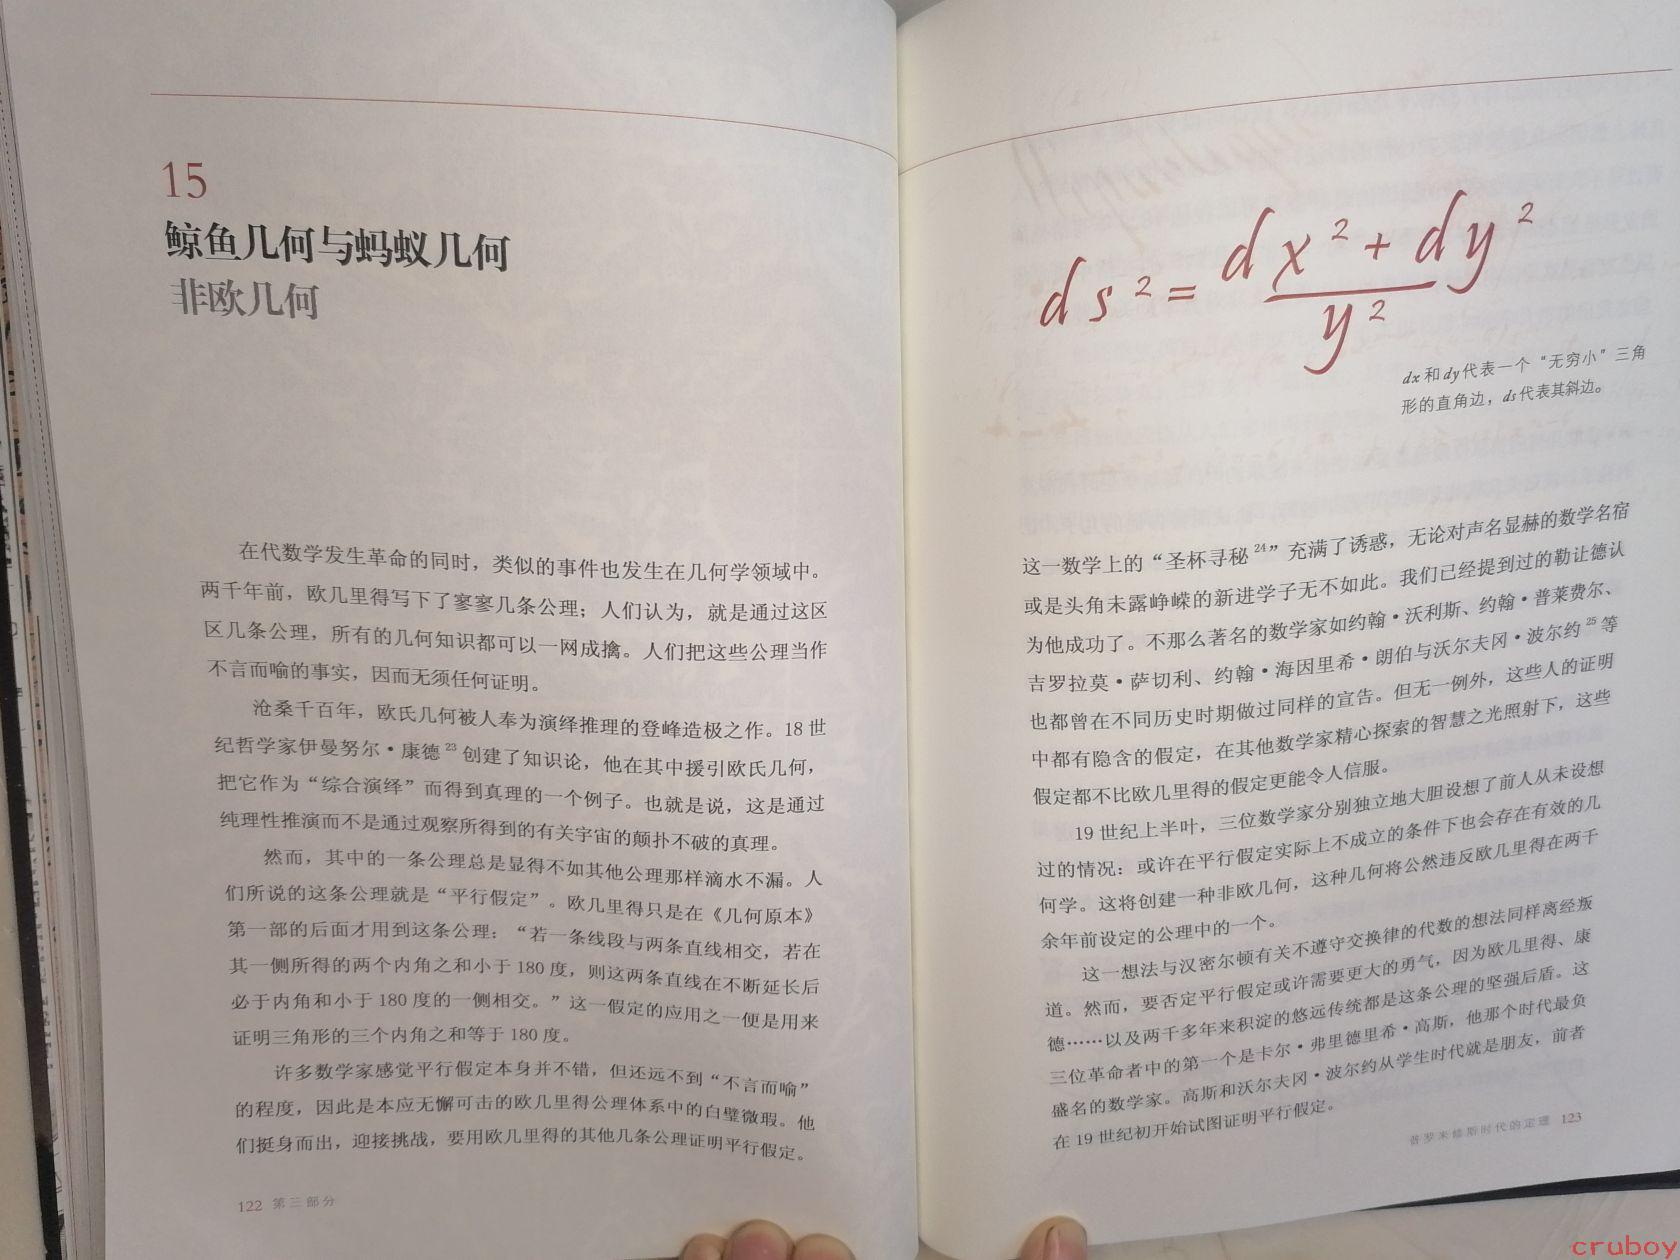 15
鲸鱼几何与蚂蚁几何
非欧几何
在代数学发生革命的同时，类似的事件也发生在几何学领域中。
两千年前，欧几里得写下了寥寥几条公理；人们认为，就是通过这区
区几条公理，所有的几何知识都可以一网成擒。人们把这些公理当作
不言而喻的事实，因而无须任何证明。
沧桑千百年，欧氏几何被人奉为演绎推理的登峰造极之作。18 世
纪哲学家伊曼努尔·康德23创建了知识论，他在其中援引欧氏几何，
把它作为“综合演绎”而得到真理的一个例子。也就是说，这是通过
纯理性推演而不是通过观察所得到的有关宇宙的颠扑不破的真理。
然而，其中的一条公理总是显得不如其他公理那样滴水不漏。人
们所说的这条公理就是“平行假定”。欧几里得只是在《几何原本》
第一部的后面才用到这条公理：“若一条线段与两条直线相交，若在
其一侧所得的两个内角之和小于 180 度，则这两条直线在不断延长后
必于内角和小于 180 度的一侧相交。”这一假定的应用之一便是用来
证明三角形的三个内角之和等于 180 度。
许多数学家感觉平行假定本身并不错，但还远不到“不言而喻”
的程度，因此是本应无懈可击的欧几里得公理体系中的白璧微瑕。他
们挺身而出，迎接挑战，要用欧几里得的其他几条公理证明平行假定。
122 第三部分
ds² = (dx² + dy²) / y²
dx和dy代表一个“无穷小”三角
形的直角边，ds代表其斜边。
这一数学上的“圣杯寻秘24”充满了诱惑，无论对声名显赫的数学名宿
或是头角未露峥嵘的新进学子无不如此。我们已经提到过的勒让德认
为他成功了。不那么著名的数学家如约翰·沃利斯、约翰·普莱费尔、
吉罗拉莫·萨切利、约翰·海因里希·朗伯与沃尔夫冈·波尔约25等
也都曾在不同历史时期做过同样的宣告。但无一例外，这些人的证明
中都有隐含的假定，在其他数学家精心探索的智慧之光照射下，这些
假定都不比欧几里得的假定更能令人信服。
19 世纪上半叶，三位数学家分别独立地大胆设想了前人从未设想
过的情况：或许在平行假定实际上不成立的条件下也会存在有效的几
何学。这将创建一种非欧几何，这种几何将公然违反欧几里得在两千
余年前设定的公理中的一个。
这一想法与汉密尔顿有关不遵守交换律的代数的想法同样离经叛
道。然而，要否定平行假定或许需要更大的勇气，因为欧几里得、康
德……以及两千多年来积淀的悠远传统都是这条公理的坚强后盾。这
三位革命者中的第一个是卡尔·弗里德里希·高斯，他那个时代最负
盛名的数学家。高斯和沃尔夫冈·波尔约从学生时代就是朋友，前者
在 19 世纪初开始试图证明平行假定。
普罗米修斯时代的定理 123
cruboy